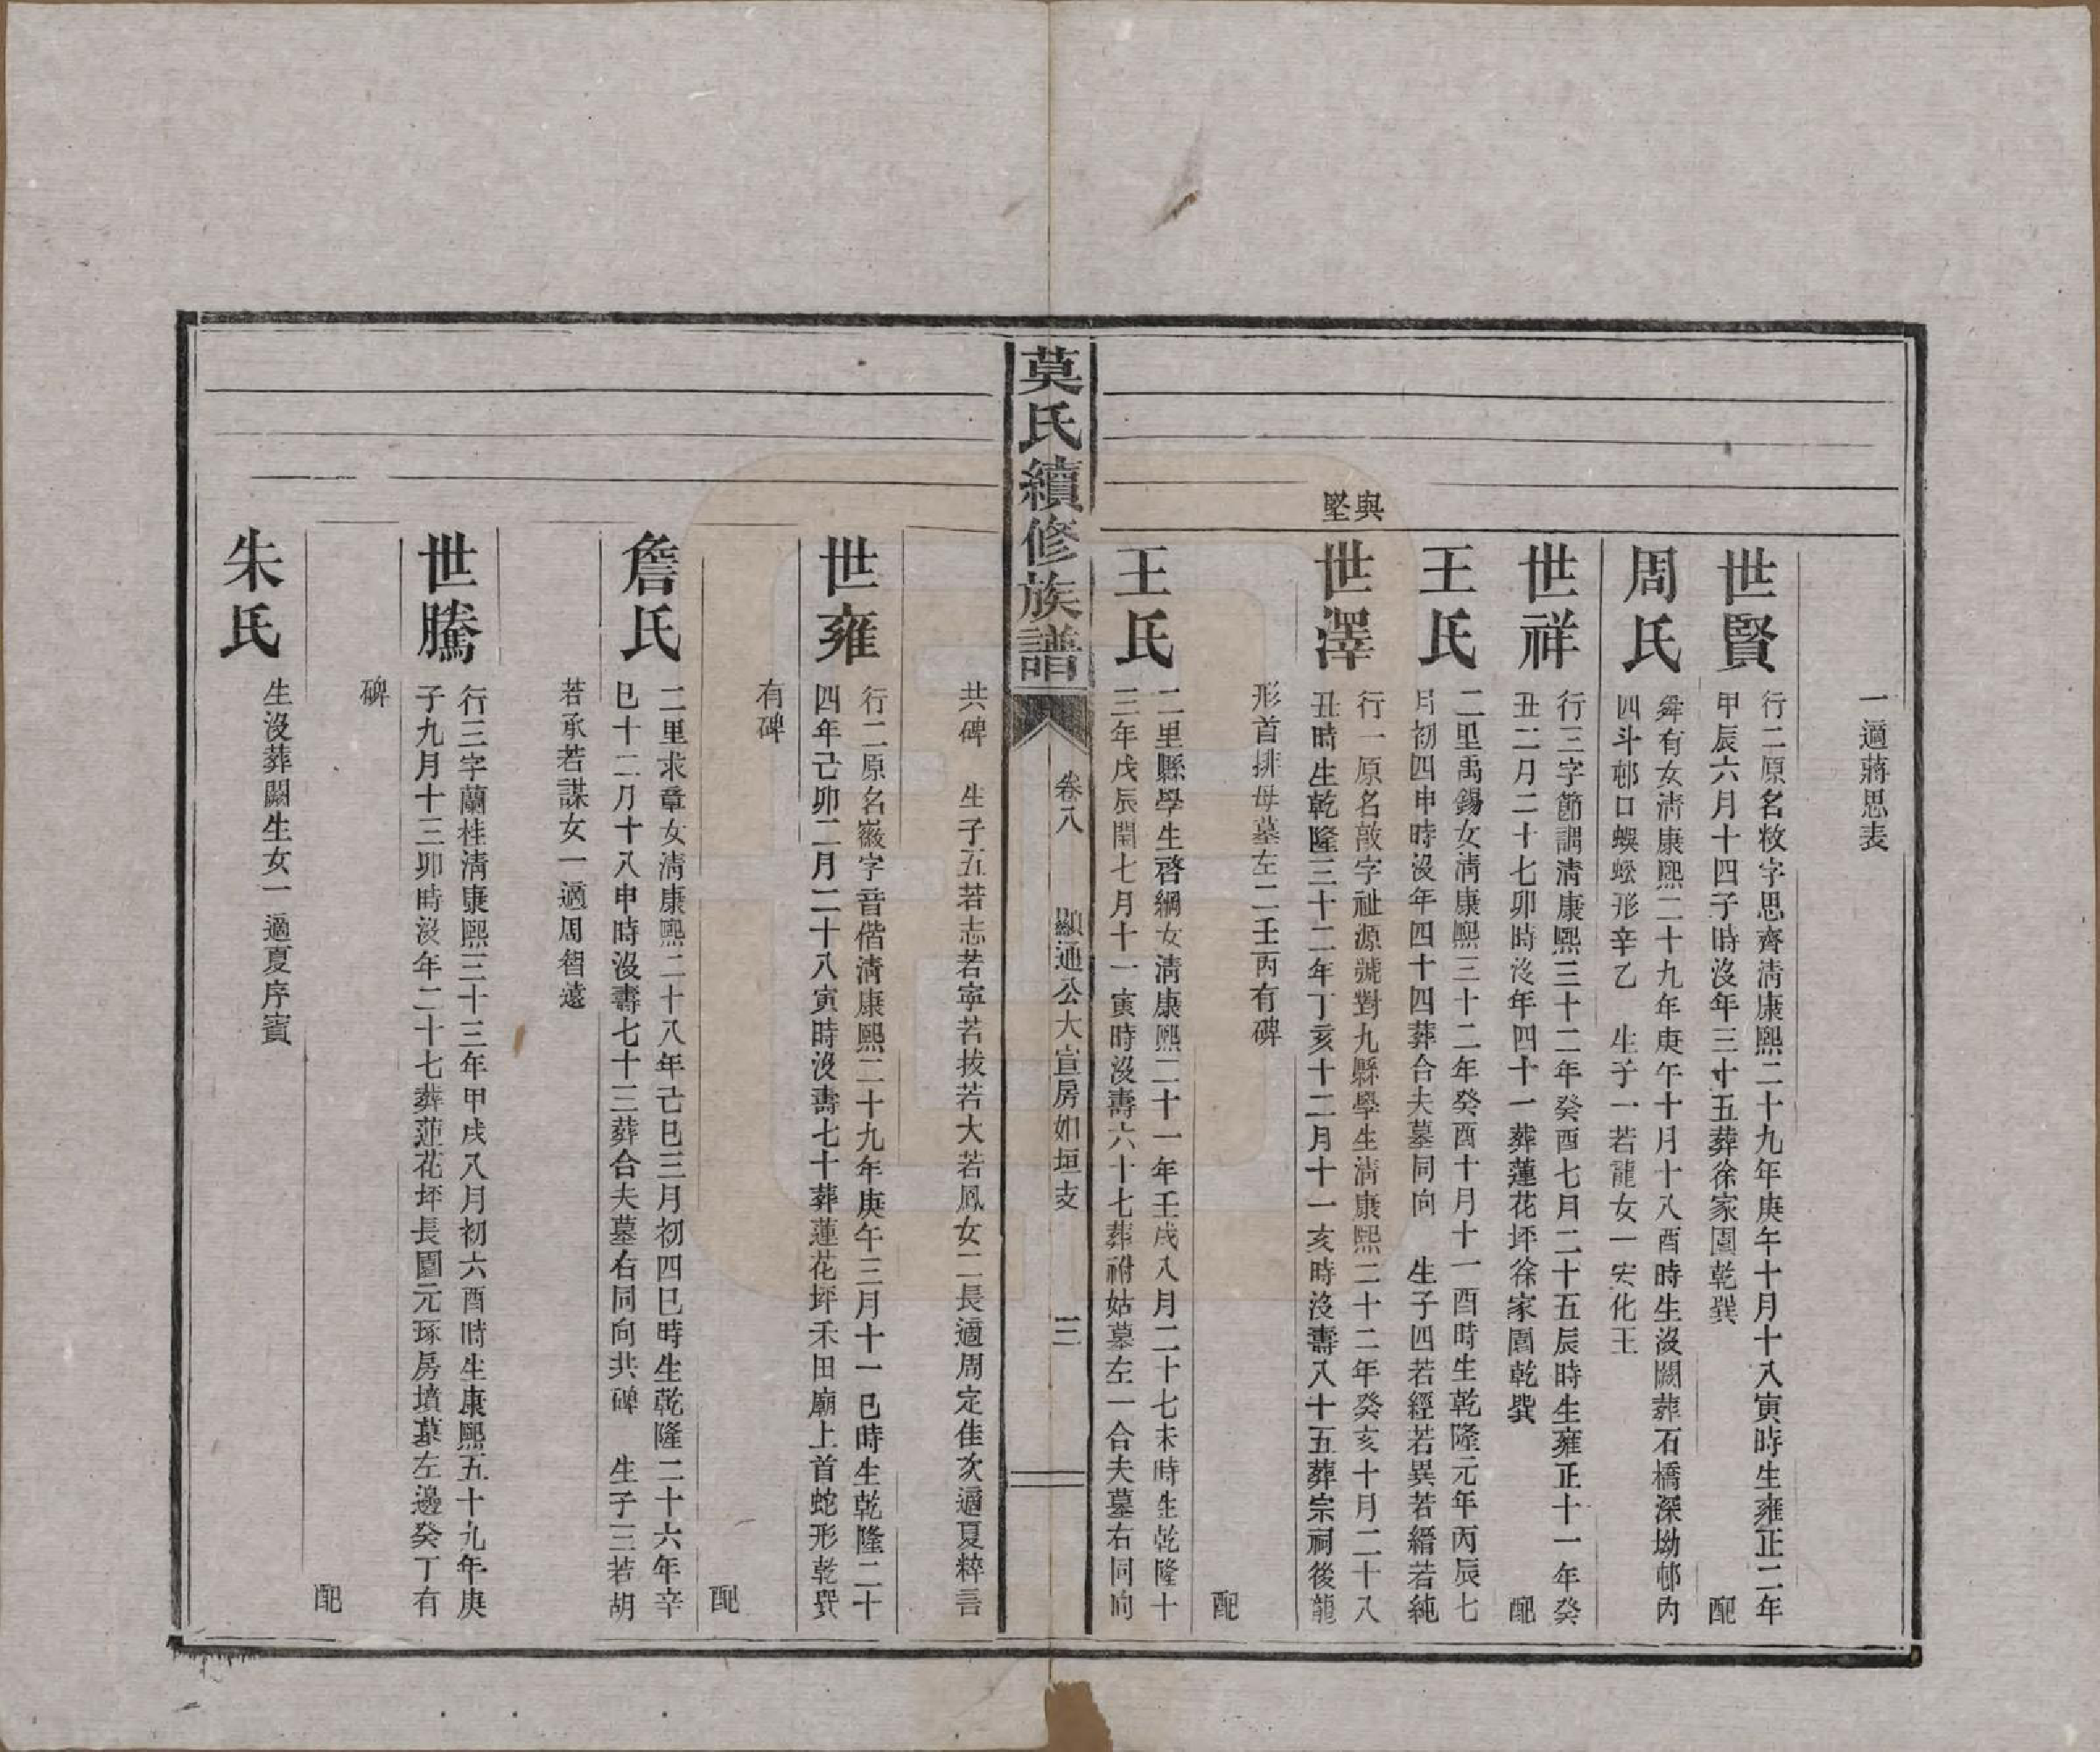 一適蔣思表
世賢
行二原名敉字思齊淸康熙二十九年庚午十月十八寅時生雍正二年
甲辰六月十四子時沒年三十五葬徐家園乾巽 配
周氏
舜有女淸康熙二十九年庚午十月十八酉時生沒闕葬石橋深坳邨內
四斗邨口蜈蚣形辛乙 生子一若龍女一安化王
世祥
行三字節調淸康熙三十二年癸酉七月二十五辰時生雍正十一年癸
丑二月二十七卯時沒年四十一葬蓮花坪徐家園乾巽 配
王氏
二里禹錫女淸康熙三十二年癸酉十月十一酉時生乾隆元年丙辰七
月初四申時沒年四十四葬合夫墓同向 生子四若經若異若縉若純
與
堅
世澤
行一原名敿字祉源號對九縣學生淸康熙二十二年癸亥十月二十八
丑時生乾隆三十二年丁亥十二月十一亥時沒壽八十五葬宗祠後龍
形首排母墓左二壬丙有碑 配
王氏
二里縣學生啓綱女淸康熙二十一年壬戌八月二十七未時生乾隆十
三年戊辰閏七月十一寅時沒壽六十七葬祔姑墓左一合夫墓右同向
莫氏續修族譜
卷八 顯通公大宣房如垣支 三
共碑 生子五若志若寧若拔若大若鳳女二長適周定佳次適夏粹言
世雍
行二原名嶶字音偕淸康熙二十九年庚午三月十一巳時生乾隆二十
四年己卯二月二十八寅時沒壽七十葬蓮花坪禾田廟上首蛇形乾巽
有碑 配
詹氏
二里求章女淸康熙二十八年己巳三月初四巳時生乾隆二十六年辛
巳十二月十八申時沒壽七十三葬合夫墓右同向共碑 生子三若胡
若承若謀女一適周智遠
世騰
行三字蘭桂淸康熙三十三年甲戌八月初六酉時生康熙五十九年庚
子九月十三卯時沒年二十七葬蓮花坪長園元琢房墳墓左邊癸丁有
碑 配
朱氏
生沒葬闕生女一適夏序賓